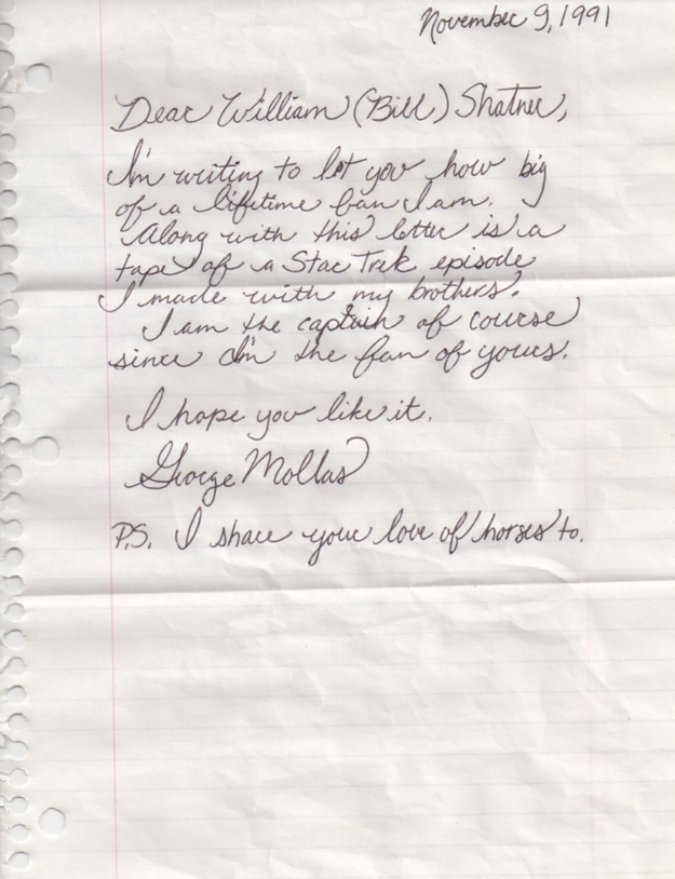 November 9, 1991
Dear William (Bill) Shatner,
I'm writing to let you how big
of a lifetime fan I am.
Along with this letter is a
tape of a Star Trek episode
I made with my brothers.
I am the captain of course
since I'm the fan of yours.
I hope you like it.
George Mollas
P.S. I share your love of horses to.